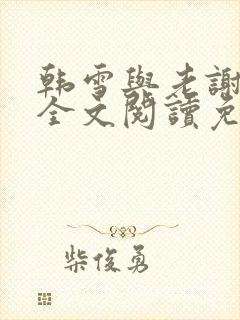 韩雪與老謝
全文閱讀免
柴俊勇